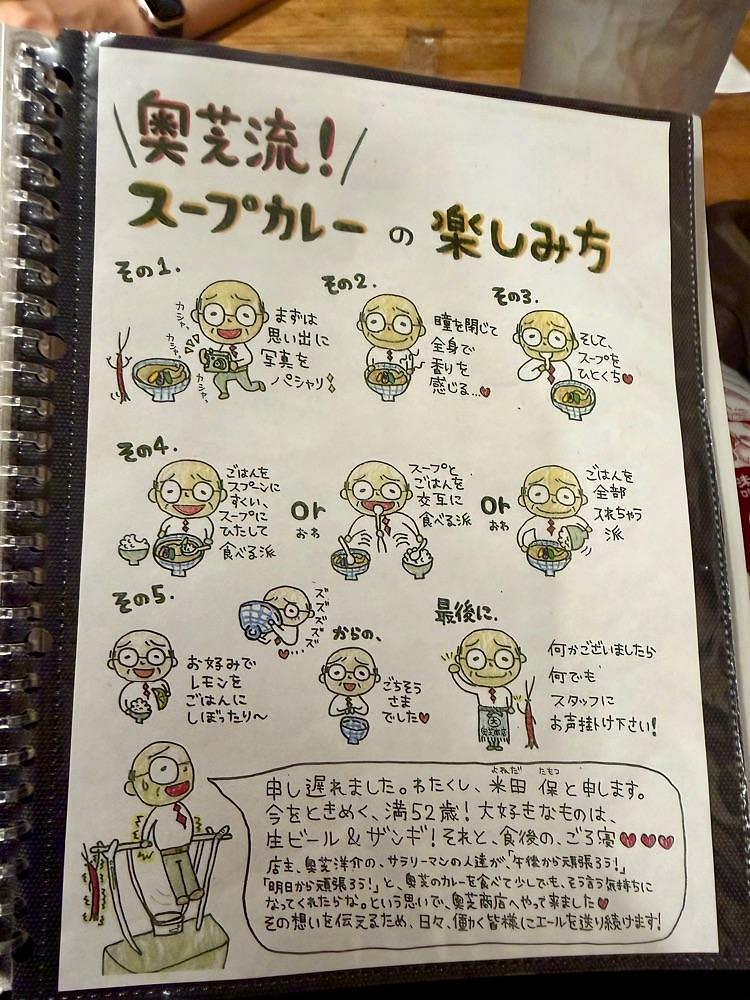 奥芝流!
スープカレーの楽しみ方
その1.
カシャ、
カシャ、
カシャ、
まずは
思い出に
写真を
パシャリ
その2.
瞳を閉じて
全身で
香りを
感じる…
その3.
そして、
スープを
ひとくち
その4.
ごはんを
スプーンに
すくい、
スープに
ひたして
食べる派
or
おわ
スープと
ごはんを
交互に
食べる派
or
おわ
ごはんを
全部
入れちゃう
派
その5.
お好みで
レモンを
ごはんに
しぼったり〜
ズズズズズ
からの、
ごちそう
さま
でした
最後に.
何かございましたら
何でも
スタッフに
お声掛け下さい!
よねだ たもつ
申し遅れました。わたくし、米田 保と申します。
今をときめく、満52歳!大好きなものは、
生ビール&ザンギ!それと、食後の、ごろ寝
店主、奥芝洋介の、サラリーマンの人達が、「午後から頑張ろう!」
「明日から頑張ろう!」と、奥芝のカレーを食べて少しでも、そう言う気持ちに
なってくれたらな。という思いで、奥芝商店へやって来ました
その想いを伝えるため、日々、働く皆様にエールを送り続けます!